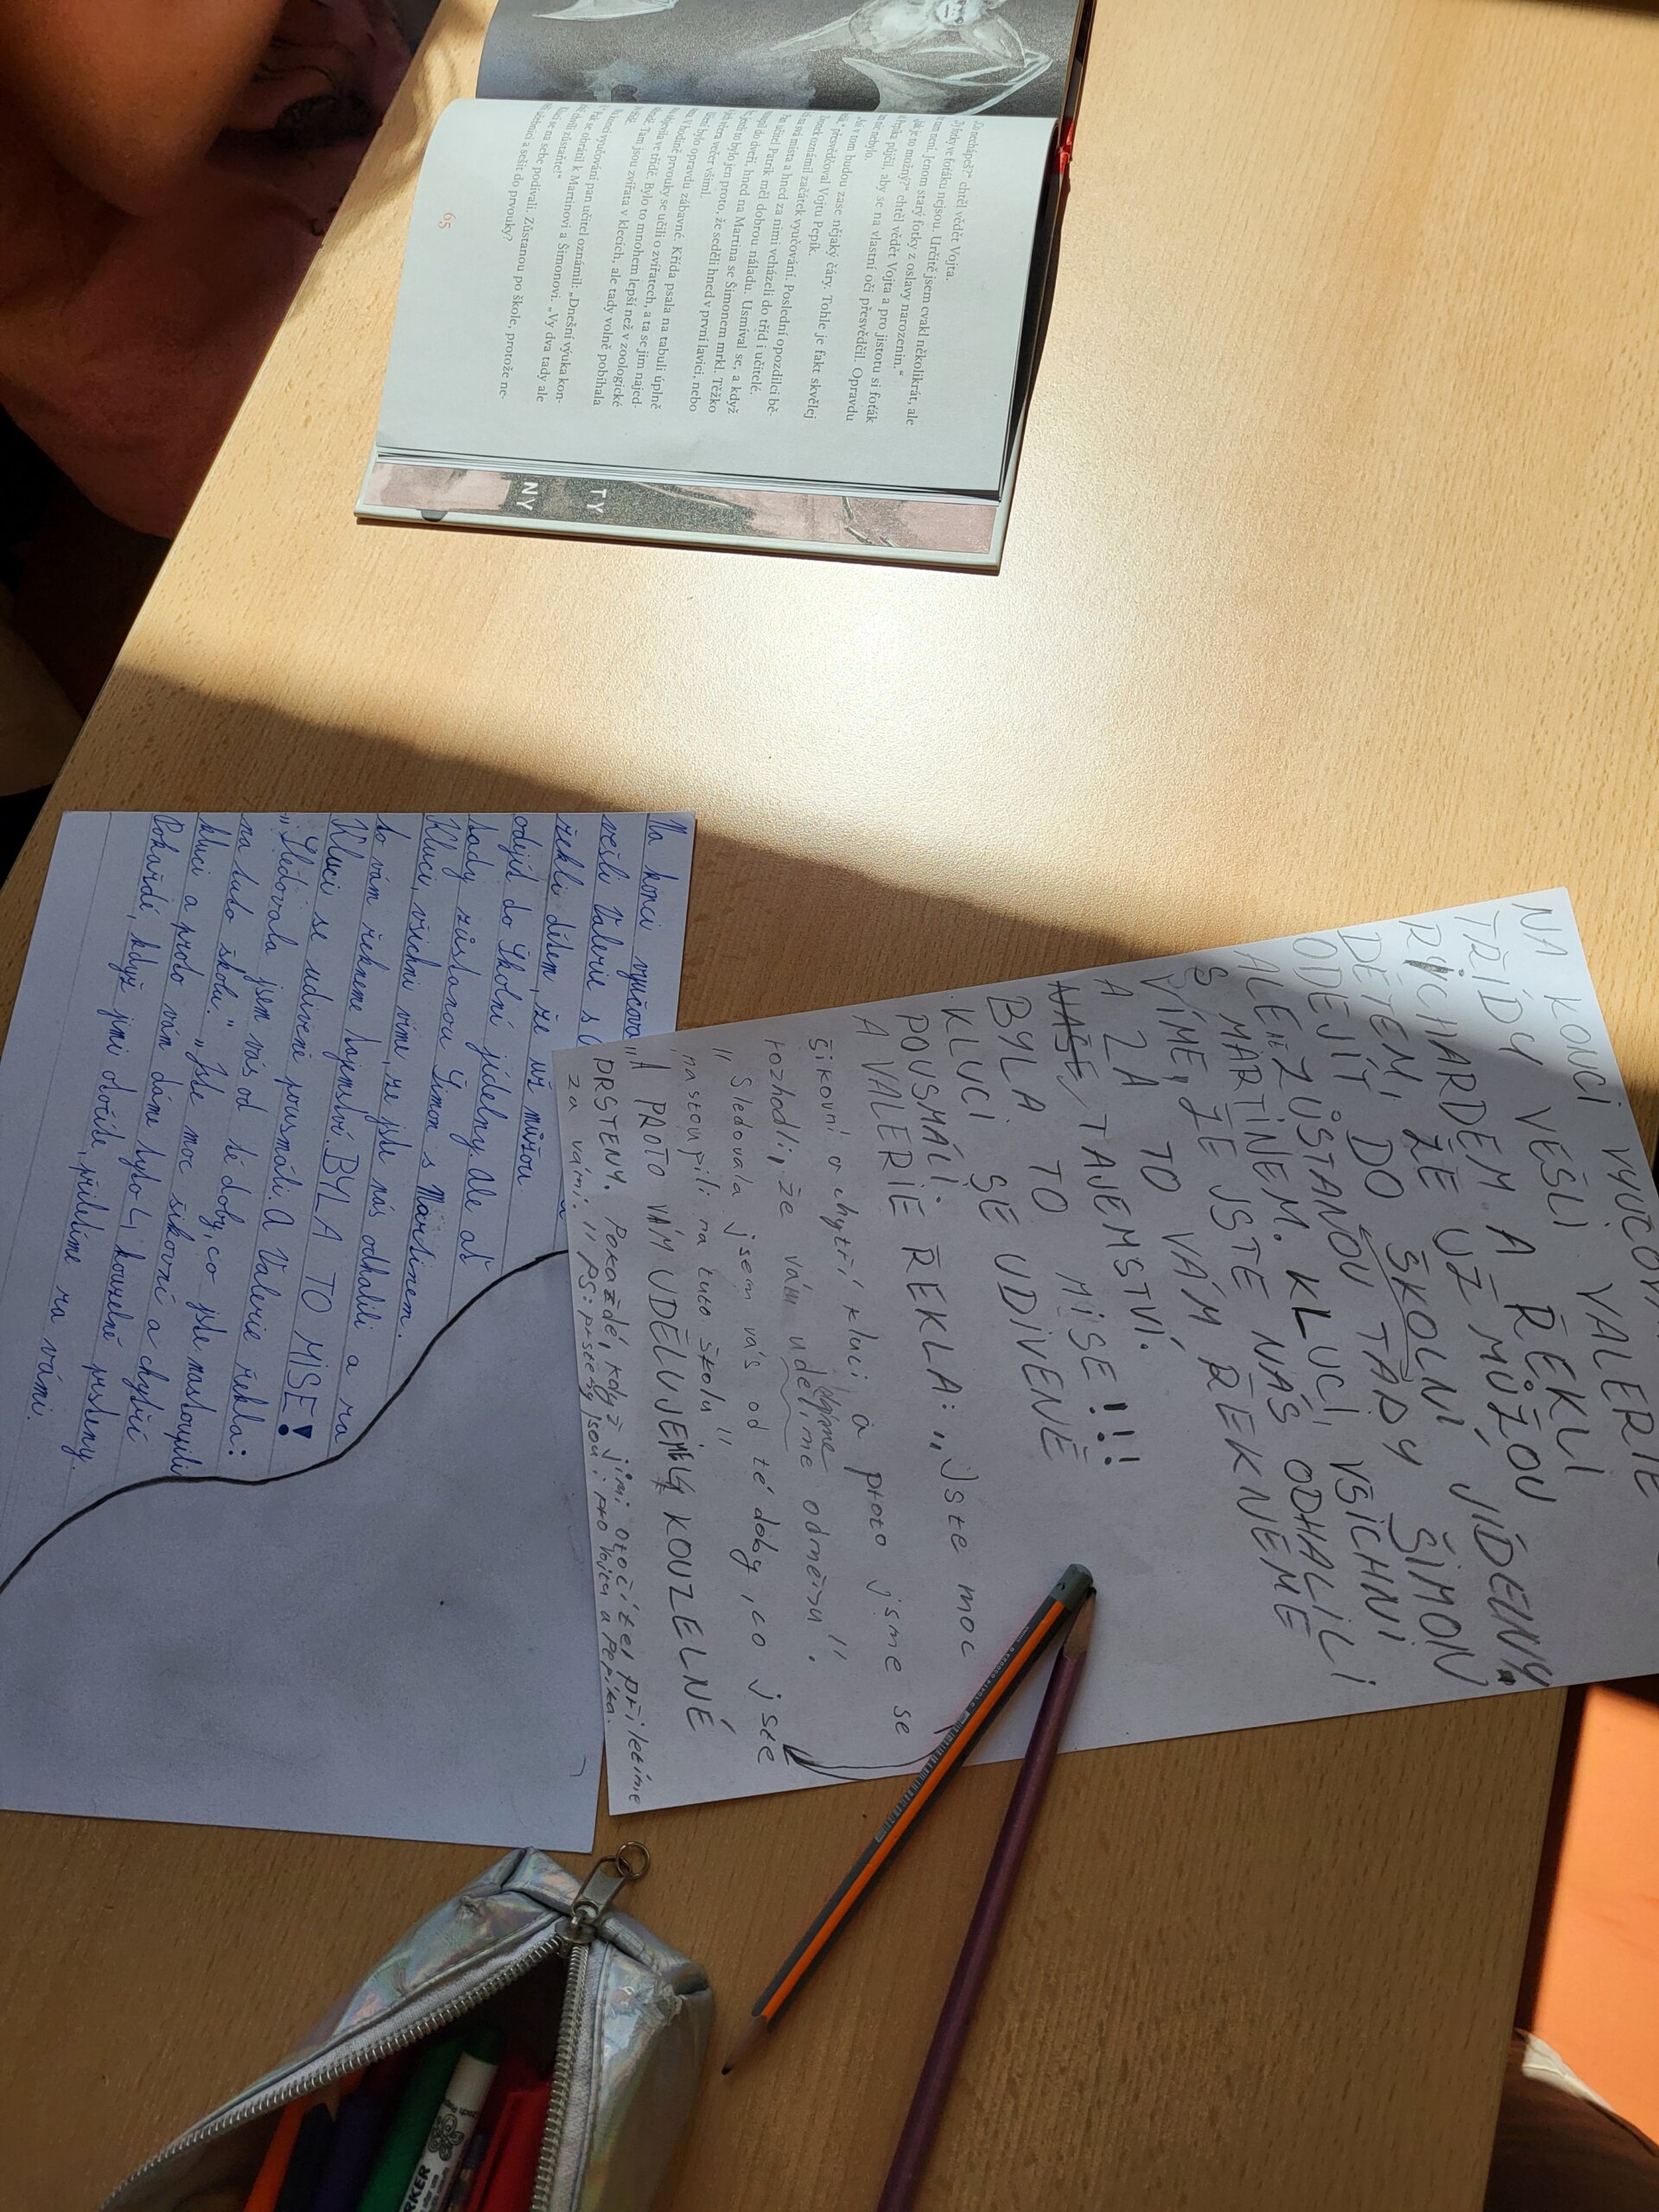 „Co nechápeš?“ chtěl vědět Vojta.
fotky ve foťáku nejsou. Určitě jsem cvakl několikrát, ale
tam není. Jenom starý fotky z oslavy narozenin.“
„Jak je to možný?“ chtěl vědět Vojta a pro jistotu si foťák
půjčil, aby se na vlastní oči přesvědčil. Opravdu
nebylo.
v tom budou zase nějaký čáry. Tohle je fakt skvělej
přesvědčoval Vojtu Pepík.
oznámil začátek vyučování. Poslední opozdilci bě-
svá místa a hned za nimi vcházeli do tříd i učitelé.
učitel Patrik měl dobrou náladu. Usmíval se, a když
do dveří, hned na Martina se Šimonem mrkl. Těžko
to bylo jen proto, že seděli hned v první lavici, nebo
včera večer všiml.
bylo opravdu zábavné. Křída psala na tabuli úplně
V hodině prvouky se učili o zvířatech, a ta se jim najed-
objevila ve třídě. Bylo to mnohem lepší než v zoologické
Tam jsou zvířata v klecích, ale tady volně pobíhala
vyučování pan učitel oznámil: „Dnešní výuka kon-
se obrátil k Martinovi a Šimonovi. „Vy dva tady ale
zůstaňte!“
se na sebe podívali. Zůstanou po škole, protože ne-
a sešit do prvouky?
65
TY
NY
NA KONCI VYUČOV
TŘÍDY VEŠLI VALERIE
RICHARDEM A ŘEKLI
DĚTEM, ŽE UŽ MŮŽOU
ODEJÍT DO ŠKOLNÍ JÍDELNY.
ALE ZŮSTANOU TADY ŠIMON
S MARTINEM. KLUCI, VŠICHNI
VÍME, ŽE JSTE NÁS ODHALILI
A ZA TO VÁM ŘEKNEME
NAŠE, TAJEMSTVÍ.
BYLA TO MISE!!!
KLUCI SE UDIVENĚ
POUSMÁLI.
A VALERIE ŘEKLA: „Jste moc
šikovní a chytří kluci a proto jsme se
rozhodli, že vám udělíme odměnu“.
„Sledovala jsem vás od té doby, co jste
nastoupili na tuto školu“
„A PROTO VÁM UDĚLUJEME 4 KOUZELNÉ
PRSTENY. Pokaždé, když jimi otočíte, přiletíme
za vámi.“ PS: prsteny jsou i pro Vojtu a Pepíka.
Na konci vyučová
vešli Valerie s
řekli dětem, že už můžou
odejít do Školní jídelny. Ale ať
tady zůstanou Šimon s Martinem.
Kluci, všichni víme, že jste nás odhalili a za
to vám řekneme tajemství. BYLA TO MISE!
Kluci se udiveně pousmáli a Valerie řekla:
„Sledovala jsem vás od té doby, co jste nastoupili
na tuto školu.“ „Jste moc šikovní a chytří
kluci a proto vám dáme tyto 4 kouzelné prsteny.
Pokaždé, když jimi otočíte, přiletíme za vámi.